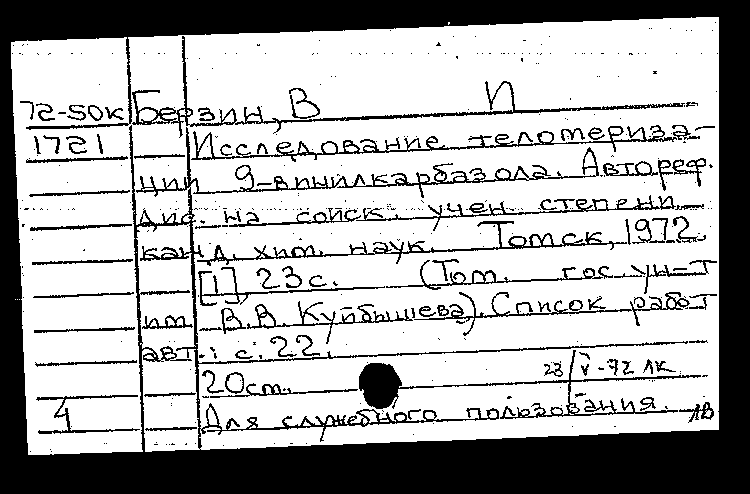 72-50к Берзин, В И
1721 Исследование теломериза-
ции 9-винилкарбазола. Автореф.
дис. на соиск. учен. степени
канд. хим. наук. Томск, 1972.
[1], 23 с. (Том. гос. ун-т
им. В.В. Куйбышева). Список работ
авт.: с. 22.
20 см. 23/V-72 ЛК
4 Для служебного пользования. ЛВ